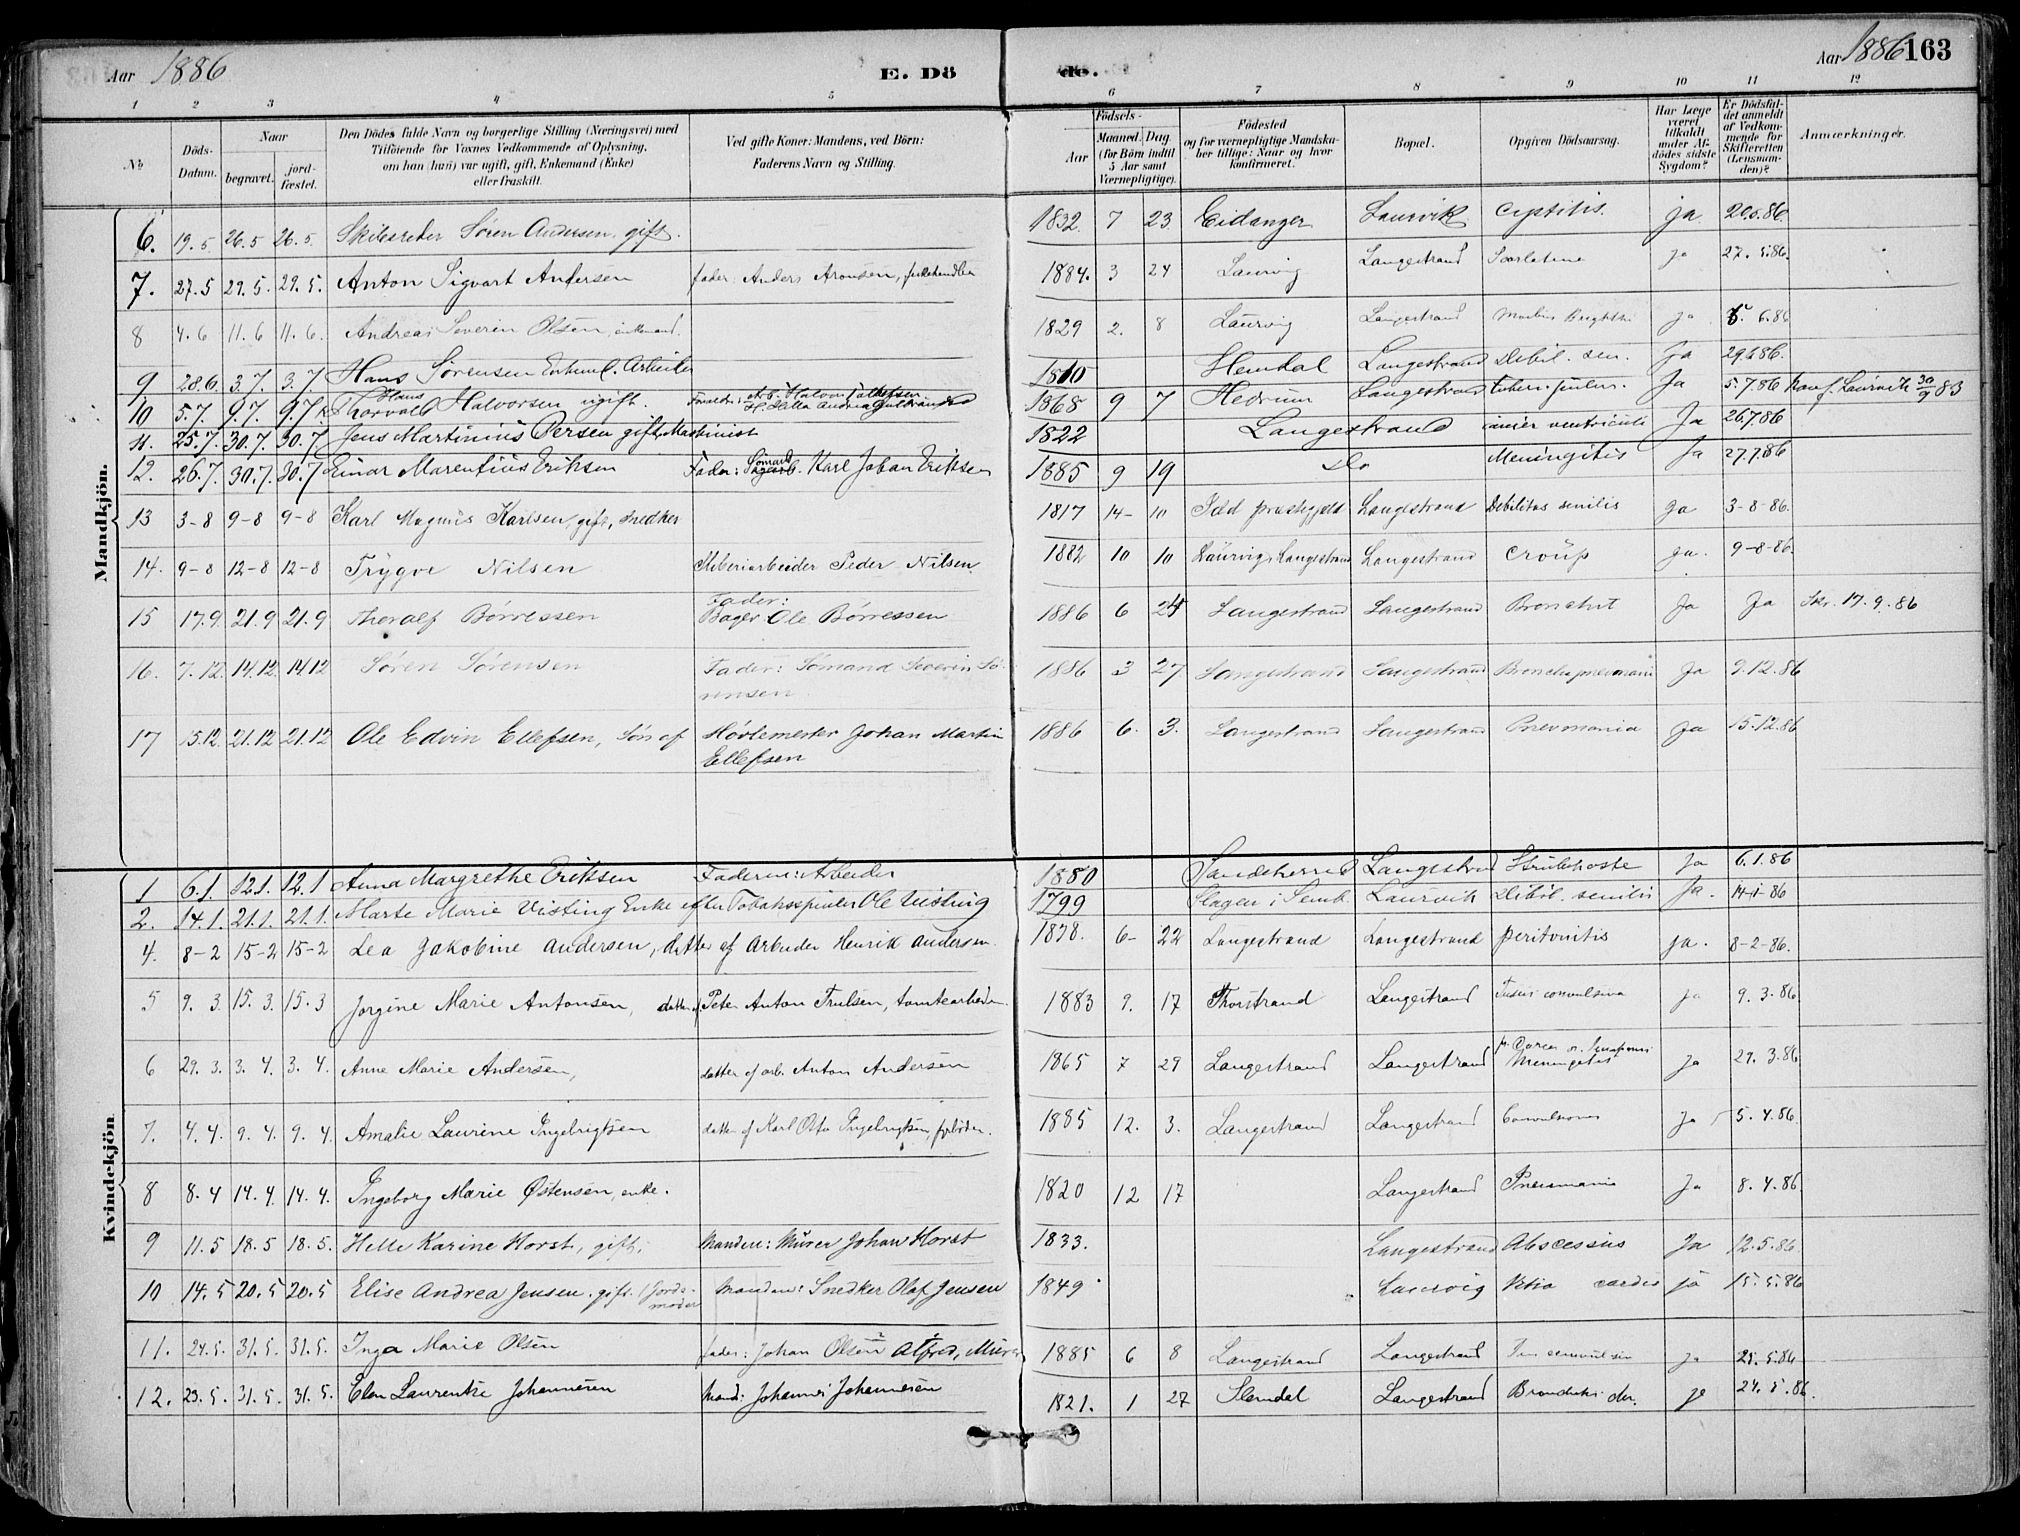 Aar 1886 E. Døde. Aar 1886 163
1 2 3 4 5 6 7 8 9 10 11 12
No
Døds-Datum.
Naar
begravet. jordfæstet.
Den Dødes fulde Navn og borgerlige Stilling (Næringsvei) med
Tilføiende for Voxnes Vedkommende af Oplysning,
om han (hun) var ugift, gift, Enkemand (Enke)
eller fraskilt.
Ved gifte Koner: Mandens, ved Børn:
Faderens Navn og Stilling.
Fødsels-
Aar Maaned. Dag.
(for Børn indtil
5 Aar samt
Værnepligtige).
Fødested
og for værnepligtige Mandskaber tillige: Naar og hvor
konfirmeret.
Bopæl.
Opgiven Dødsaarsag.
Har Læge
været
tilkaldt
under Afdødes sidste
Sygdom?
Er Dødsfaldet anmeldt
af Vedkommende for
Skifteretten
(Lensmanden)?
Anmærkninger.
Mandkjön.
6. 19.5 26.5 26.5. Skibsreder Søren Andersen, gift. 1832 7 23 Eidanger Laurvik Cystitis. ja 20.5.86.
7. 27.5 29.5. 29.5. Anton Sigvart Andersen fader: Anders Aronsen, fiskehandler 1884. 3 24 Laurvig Langestrand Scarlatina ja 27.5.86.
8 4.6 11.6 11.6. Andreas Severin Olsen, enkemand. 1829 2. 8 Laurvig Langestrand Morbus Brightii ja 5.6.86
9 28.6 3.7. 3.7 Hans Sørensen Enkem. Arbeider 1810 Hemdal Langestrand Debil. sen. Ja 29.6.86.
10 5.7. 9.7. 9.7. Hans Thorvald Halvorsen ugift. 1868 9 7 Hedrum Langestrand tuber. pulm. Ja 5.7.86 Konf. Laurvik 30/9 83
11. 25.7. 30.7. 30.7. Jens Martinius Persen gift, Maskinist 1822 Langestrand cancer ventriculi Ja 26.7.86
12. 26.7. 30.7. 30.7 Einar Marentius Eriksen Fader: Sømand Karl Johan Eriksen 1885 9 19 Do Meningitis Ja 27.7.86
13 3-8 9-8 9-8 Karl Magnus Karlsen, gift, snedker 1817 14- 10 Idd præstegjeld Langestrand Debilitas senilis ja 3-8-86.
14. 9-8 12-8 12-8 Trygve Nilsen Peder Nilsen. 1882 10 10 Laurvig, Langestrand Langestrand Croup ja. 9-8-86.
15 17.9. 21.9 21.9 Thoralf Børressen Fader:
Bager Ole Børressen 1886 6 24 Langestrand Langestrand Bronchit Ja Ja Skr. 17.9.86
16. 7.12. 14.12 14.12 Søren Sørensen Fader: Sømand Severin Sørensen 1886 3 27 Langestrand Langestrand Bronchopneumoni Ja 9.12.86
17 15.12. 21.12 21.12 Ole Edvin Ellefsen, Søn af Høvlemester Johan Martin
Ellefsen 1886 6. 3. Langestrand Langestrand Pneumonia Ja 15.12.86
Kvindekjön
1 6.1. 12.1. 12.1 Anna Margrethe Eriksen Faderen: Arbeider 1880 Sandeherred Langestrand Strubehoste Ja 6.1.86
2. 14.1. 21.1. 21.1. Marte Marie Visting Enke efter Tobaksspinder Ole Visting 1799 Slagen i Semb. Laurvik Debil. senilis Ja. 14-1-86
4. 8-2 15-2 15-2 Lea Jakobine Andersen, datter af Arbeider Henrik Andersen. 1878. 6- 22 Langestrand Langestrand peritonitis ja. 8-2-86.
5 9.3. 15.3. 15.3 Jorgine Marie Antonsen, datter af Peter Anton Trulsen, tomtearbeider. 1883 9. 17 Thorstrand Langestrand Tussis convulsiva ja 9.3.86.
6 29.3. 3.4. 3.4. Anne Marie Andersen, datter af arb. Anton Andersen 1865 7 29 Langestrand Langestrand Meningitis ja 29.3.86
7. 4.4. 9.4. 9.4. Amalie Laurine Ingebrigtsen datter af Karl Otto Ingebrigtsen, fyrbøder. 1885 12. 3. Langestrand Langestrand Convulsiones Ja 5.4.86.
8 8.4 14.4. 14.4. Ingeborg Marie Østensen, enke. 1820 12 17 Langestrand Pneumonia Ja 8.4.86.
9 11.5 18.5 18.5. Helle Karine Horst, gift. Manden: Murer Johan Horst 1833. Langestrand Abscessus Ja 12.5.86.
10 14.5 20.5 20.5 Elise Andrea Jensen. gift. / Jordemoder Manden: Snedker Olaf Jensen 1849 Laurvig Vitia cordis ja 15.5.86
11. 24.5. 31.5. 31.5. Inga Marie Olsen fader: Johan Olsen Alfred, Murer 1885 6 8 Langestrand Langestrand ja 25.5.86
12. 23.5. 31.5. 31.5. Elen Laurentse Johannesen Mand: Johannes Johannesen 1821. 1 27 Slemdal Langestrand ja 24.5.86.